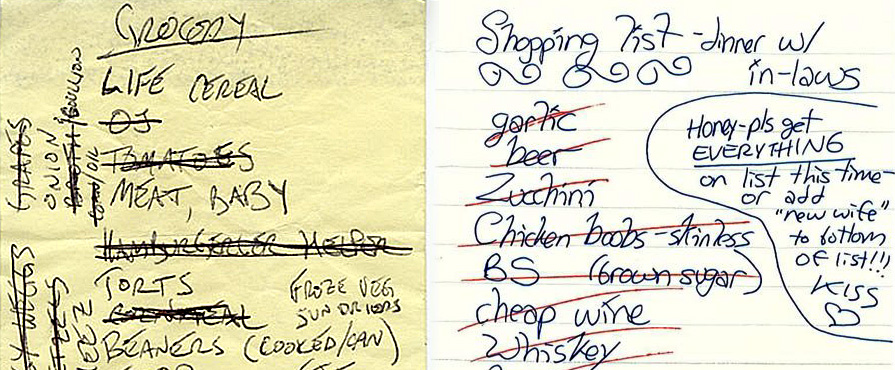 GROCERY
LIFE CEREAL
OJ
TOMATOES
MEAT, BABY
HAMBURGERLER HELPER
TORTS
CORNMEAL
BEANERS (COOKED/CAN)
FROZE VEG
SUN DRIODS
GRAPES
ONION
BROTH/BOUILLON
Shopping list - dinner w/
in-laws
garlic
beer
Zucchini
Chicken boobs - skinless
BS (brown sugar)
cheap wine
Whiskey
Honey - pls get
EVERYTHING
on list this time -
or add
"new wife"
to bottom
of list!!!
KISS